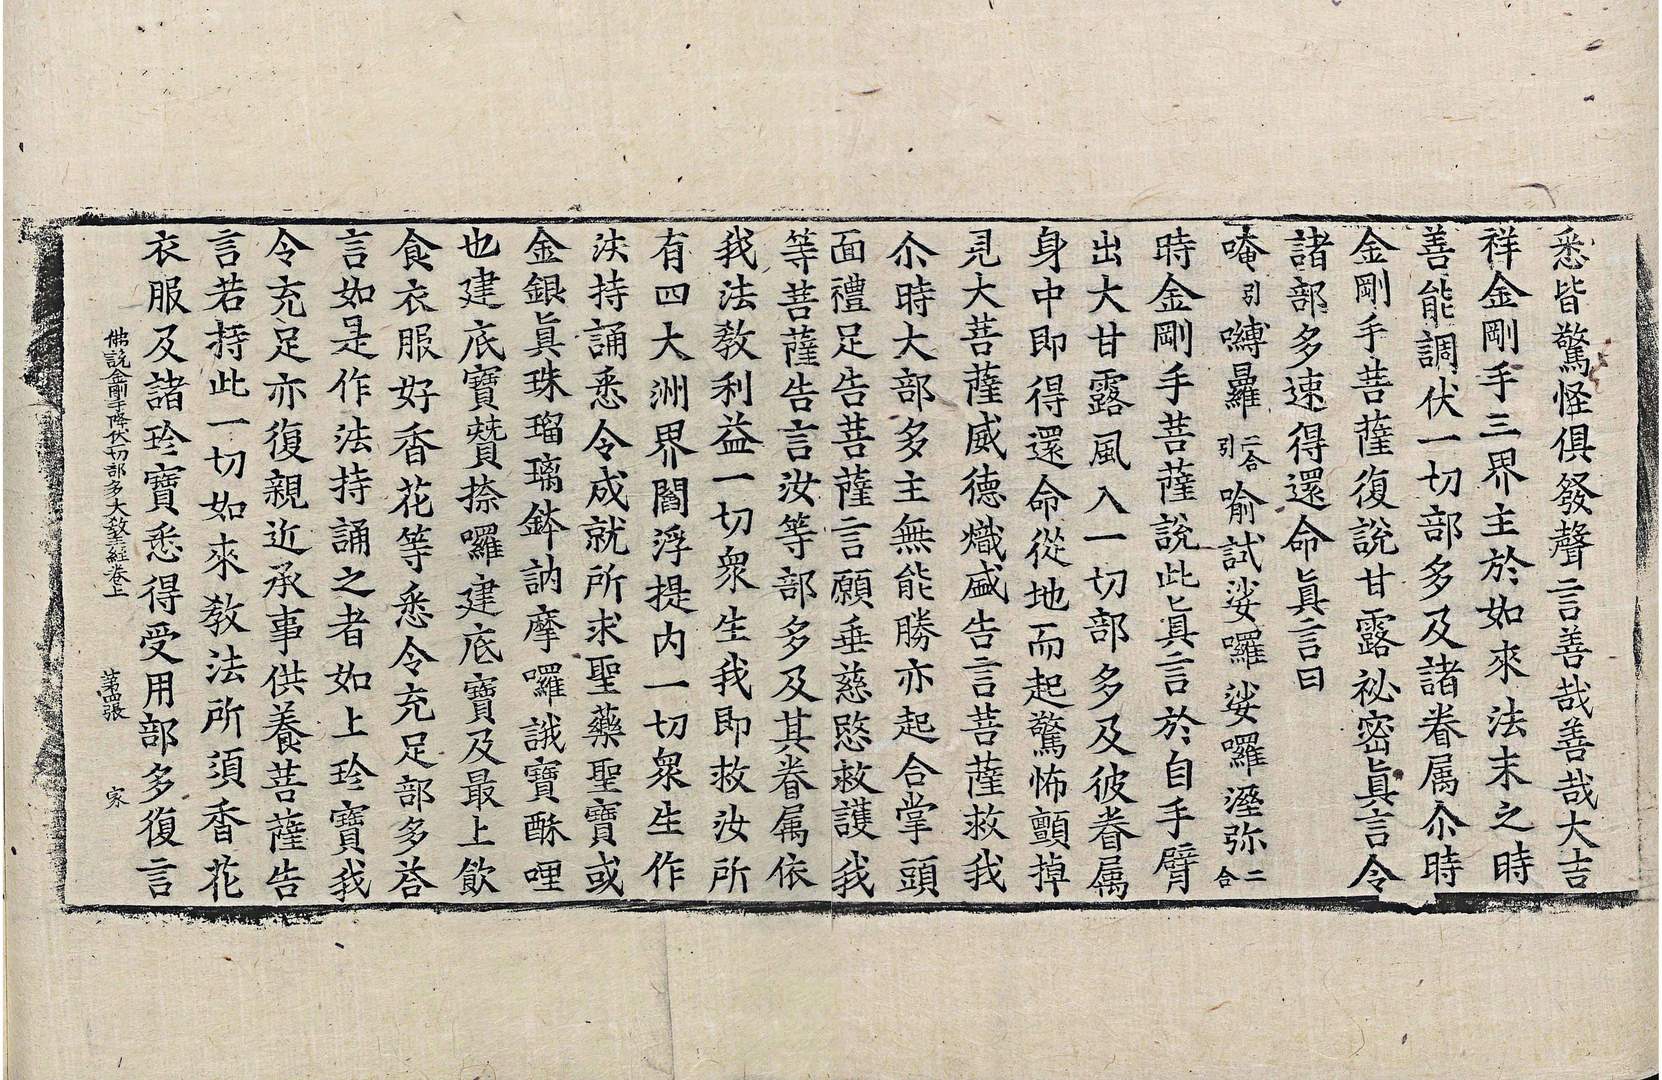 悉皆驚怪俱發聲言善哉善哉大吉
祥金剛手三界主於如來法末之時
善能調伏一切部多及諸眷属尒時
金剛手菩薩復說甘露祕密眞言令
諸部多速得還命眞言曰
唵引嚩曩二合引喻試娑囉娑囉溼弥二合
時金剛手菩薩說此眞言於自手臂
出大甘露風入一切部多及彼眷属
身中即得還命從地而起驚怖顫掉
見大菩薩威德熾盛告言菩薩救我
尒時大部多主無能勝亦起合掌頭
面禮足告菩薩言願垂慈愍救護我
等菩薩告言汝等部多及其眷属依
我法教利益一切衆生我即救汝所
有四大洲界閻浮提内一切衆生作
法持誦悉令成就所求聖藥聖寶或
金銀眞珠瑠璃鉢訥摩囉誐寶酥哩
也建底寶贊捺囉建底寶及最上飲
食衣服好香花等悉令充足部多荅
言如是作法持誦之者如上珍寶我
令充足亦復親近承事供養菩薩告
言若持此一切如來教法所須香花
衣服及諸珍寶悉得受用部多復言
佛說金剛手降伏一切部多大教王經卷上　第四張　家